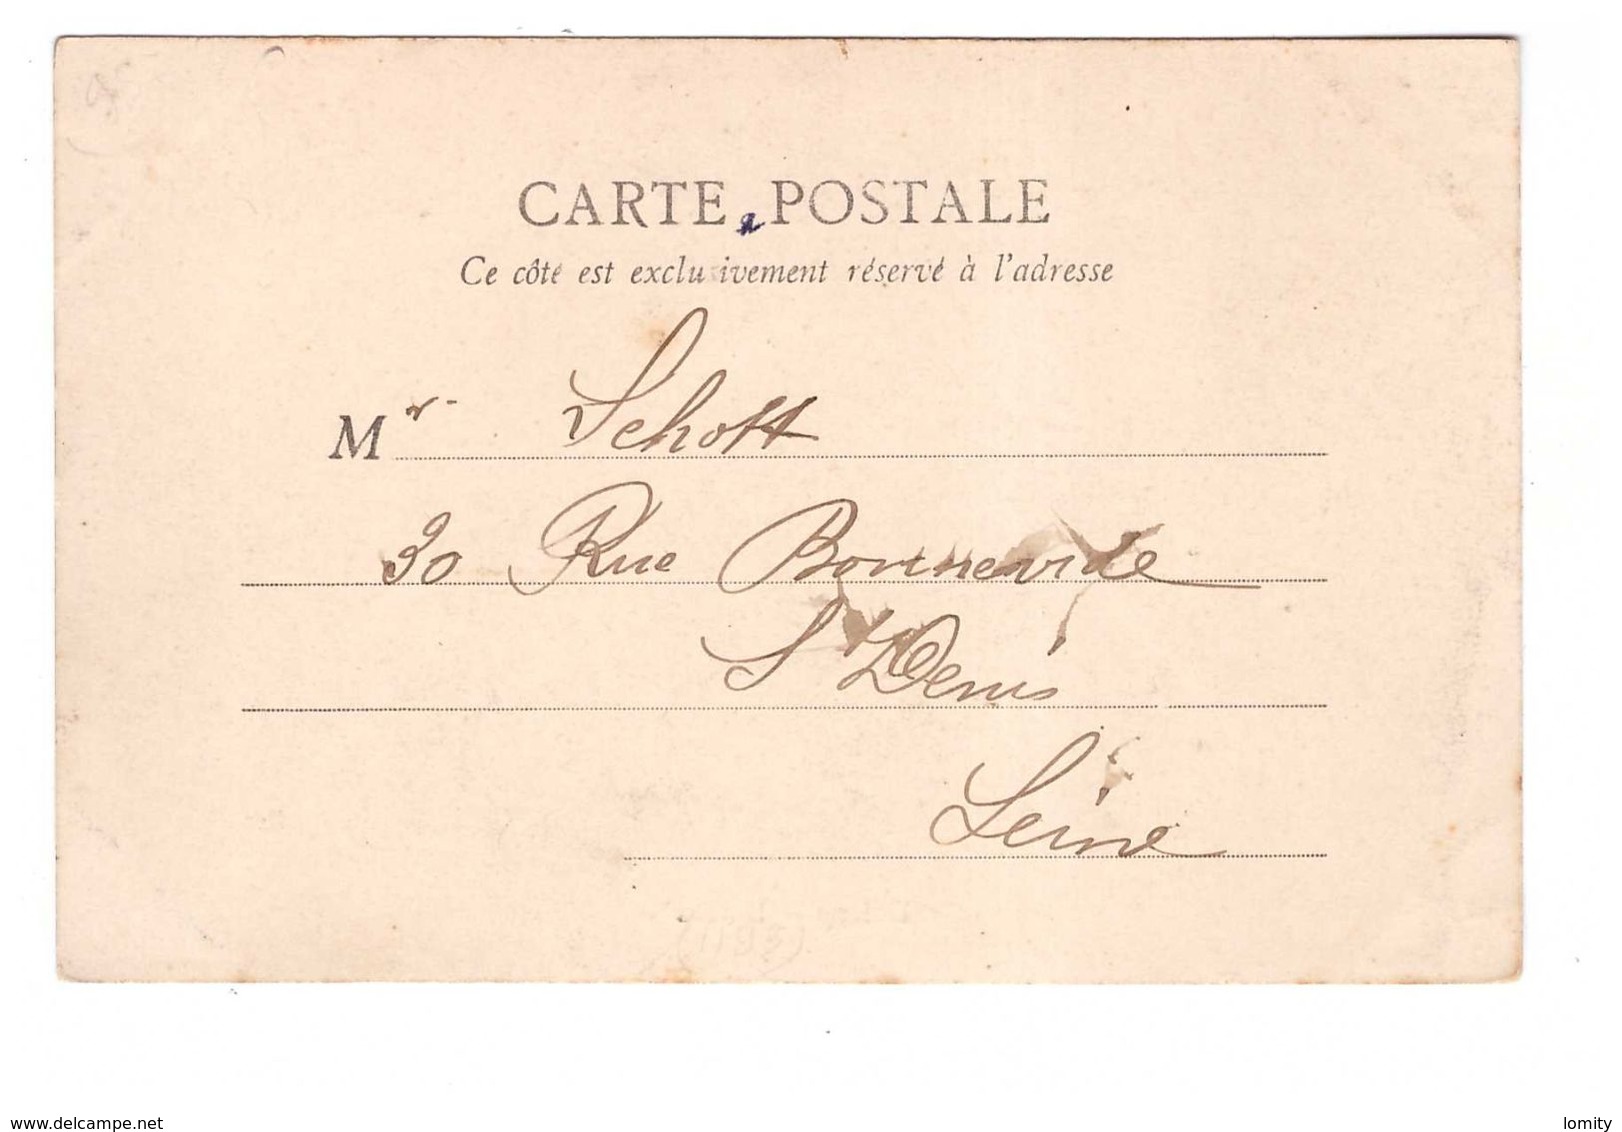 CARTE POSTALE
Ce côté est exclusivement réservé à l'adresse
Mr. Schott
30 Rue Bonnevide
St Denis
Seine
(1193)
www.delcampe.net
lomity